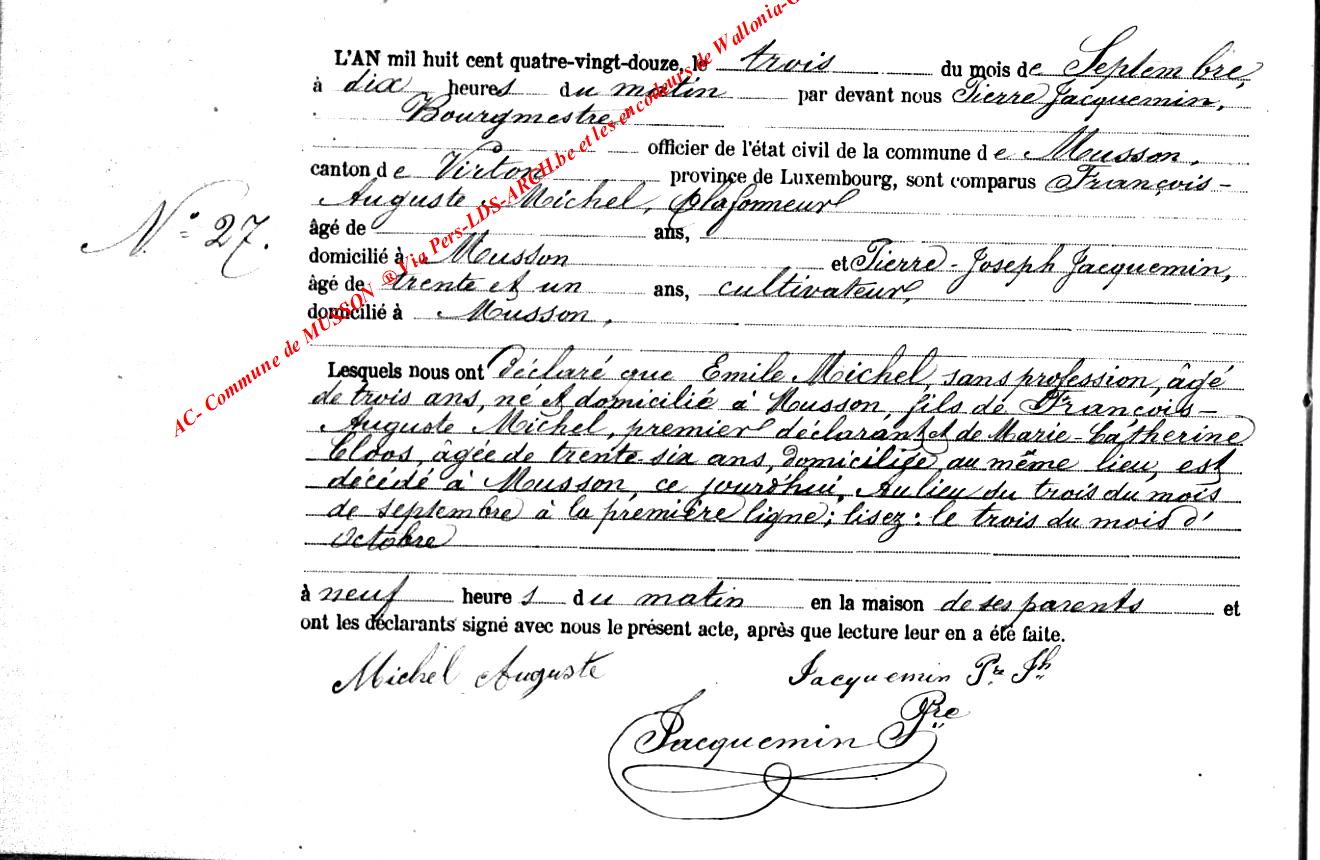 L'AN mil huit cent quatre-vingt-douze, le trois du mois de Septembre,
à dix heures du matin par devant nous Pierre Jacquemin,
Bourgmestre
officier de l'état civil de la commune de Musson,
canton de Virton province de Luxembourg, sont comparus François-
Auguste Michel, plafonneur
N.º 27.
âgé de ans,
domicilié à Musson et Pierre-Joseph Jacquemin,
âgé de trente et un ans, cultivateur,
domicilié à Musson,
Lesquels nous ont déclaré que Emile Michel, sans profession, âgé
de trois ans, né et domicilié à Musson, fils de François-
Auguste Michel, premier déclarant et de Marie-Catherine
Cloos, âgée de trente-six ans, domiciliée au même lieu, est
décédé à Musson, ce jourd'hui. Au lieu du trois du mois
de septembre à la première ligne; lisez: le trois du mois d'
octobre
à neuf heures du matin en la maison de ses parents et
ont les déclarants signé avec nous le présent acte, après que lecture leur en a été faite.
Michel Auguste Jacquemin Pre Jh
Jacquemin Pre
AC- Commune de MUSSON ® Via Pers-LDS-ARCH.be et les encodeurs de Wallonia-